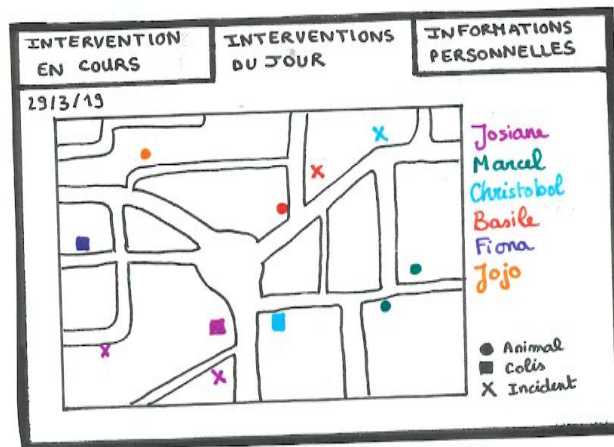 INTERVENTION
EN COURS
INTERVENTIONS
DU JOUR
INFORMATIONS
PERSONNELLES
29/3/19
Josiane
Marcel
Christobol
Basile
Fiona
Jojo
Animal
Colis
Incident